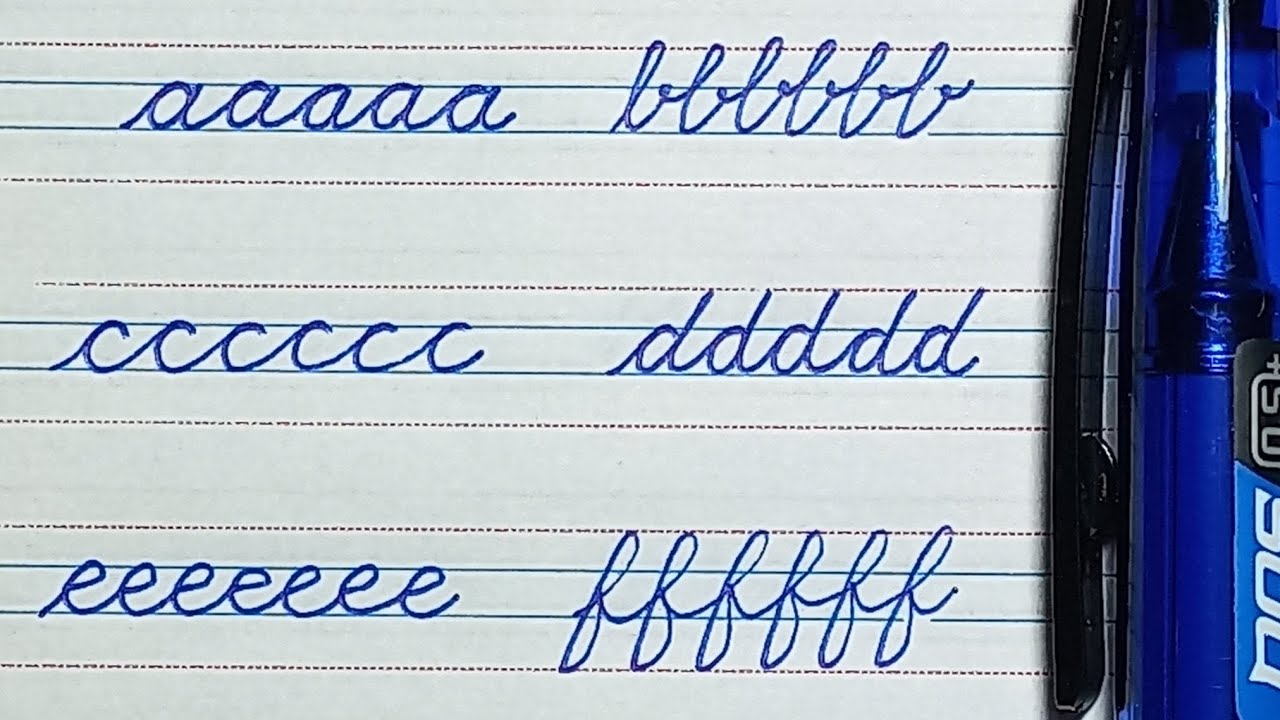 aaaaa bbbbbb
cccccc ddddd
eeeeeee ffffff
0.5+